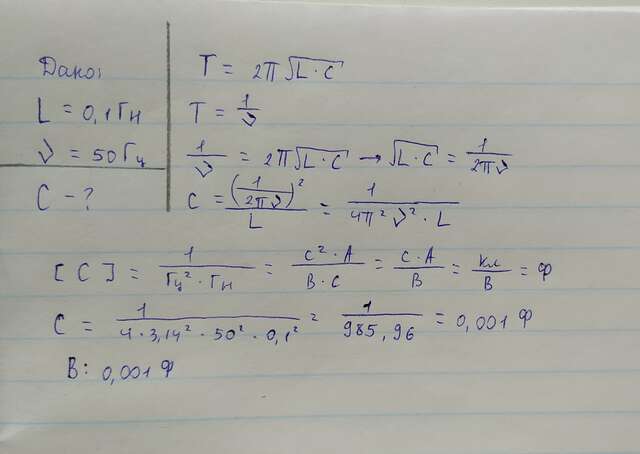 Дано:
L = 0,1 Гн
ν = 50 Гц
C - ?
T = 2π√L·C
T = 1/ν
1/ν = 2π√L·C → √L·C = 1/2πν
C = (1/2πν)²/L = 1/4π²ν²·L
[C] = 1/Гц²·Гн = с²·А/В·с = с·А/В = Кл/В = Ф
C = 1/4·3,14²·50²·0,1² = 1/985,96 = 0,001 Ф
В: 0,001 Ф